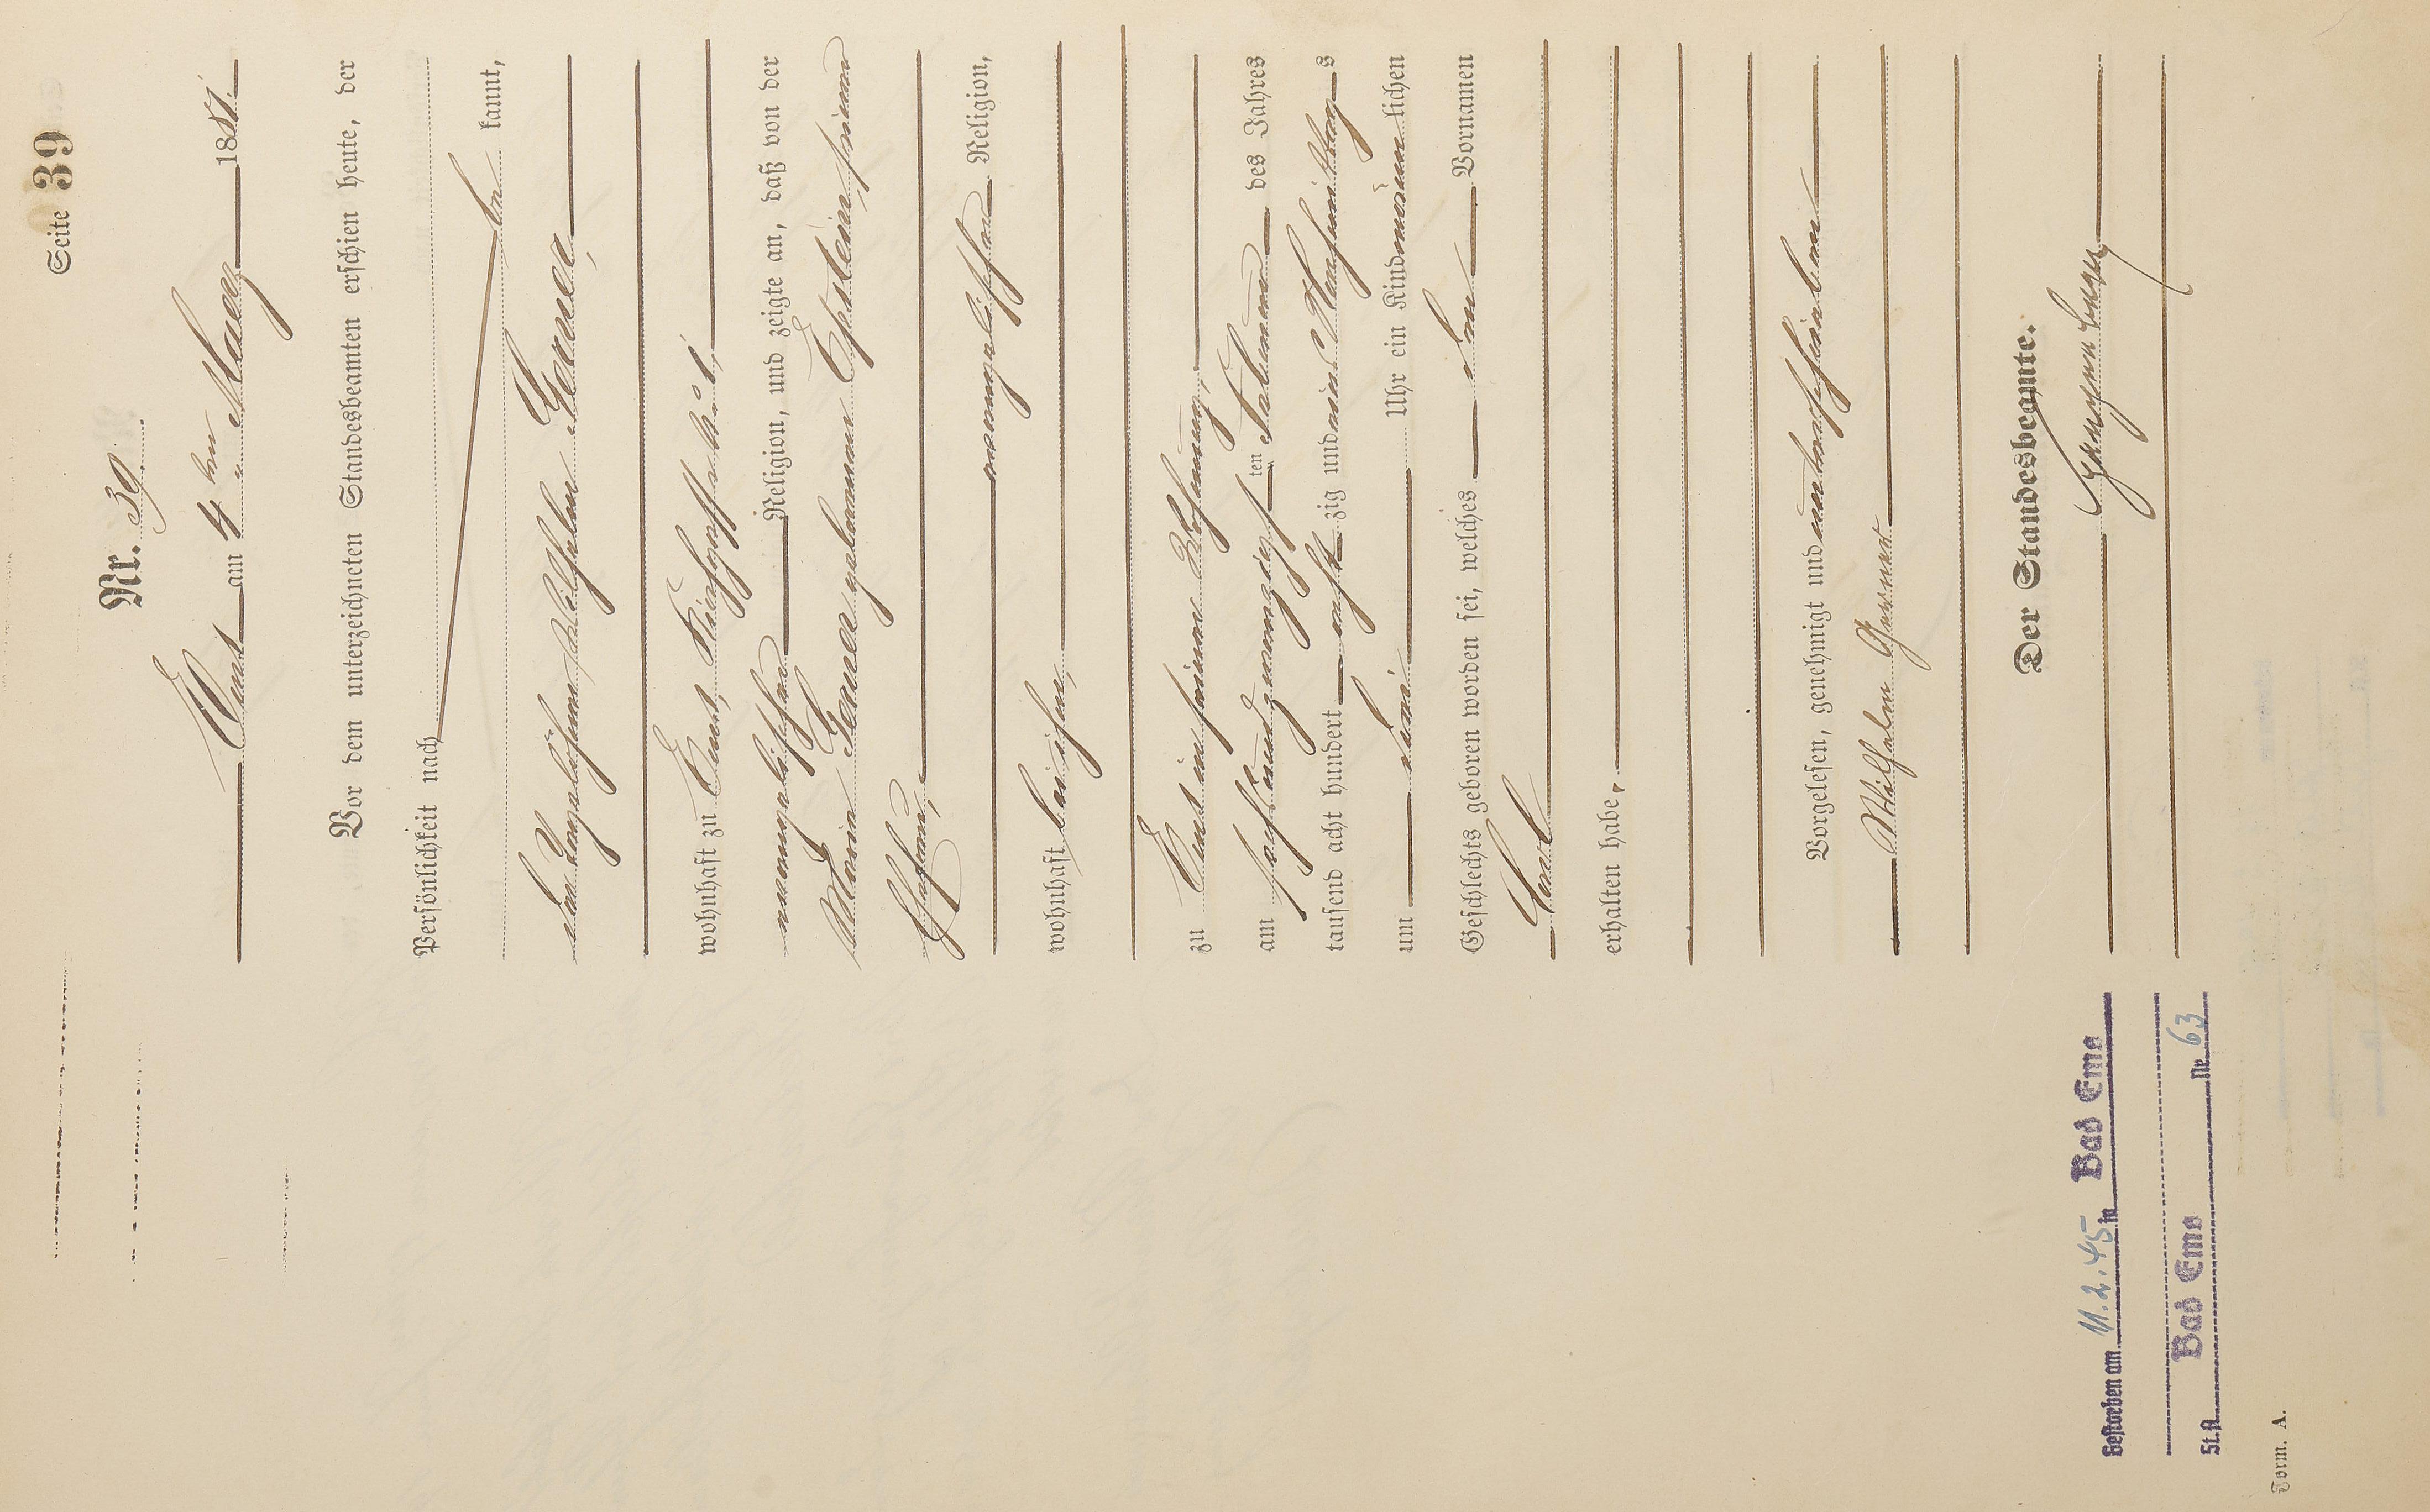 Seite 39
Nr. 39.
Ems am 4ten Maerz 1881.
Vor dem unterzeichneten Standesbeamten erschien heute, der
Persönlichkeit nach
be kannt,
der Taglöhner Wilhelm Gerner,
wohnhaft zu Ems,
evangelischer Religion, und zeigte an, daß von der
Maria Gerner geborenen Epstein, seiner
Ehefrau,
evangelischer Religion,
wohnhaft bei ihm,
zu Ems in seiner Wohnung,
am sechsundzwanzigsten Februar des Jahres
tausend acht hundert acht zig und eins Nachmittags
um drei Uhr ein Kind männlichen
Geschlechts geboren worden sei, welches den Vornamen
Emil
erhalten habe.
Vorgelesen, genehmigt und unterschrieben
Wilhelm Gerner
Der Standesbeamte.
Gestorben am 11.2.45 in Bad Ems
St.A. Bad Ems Nr. 63
Form. A.